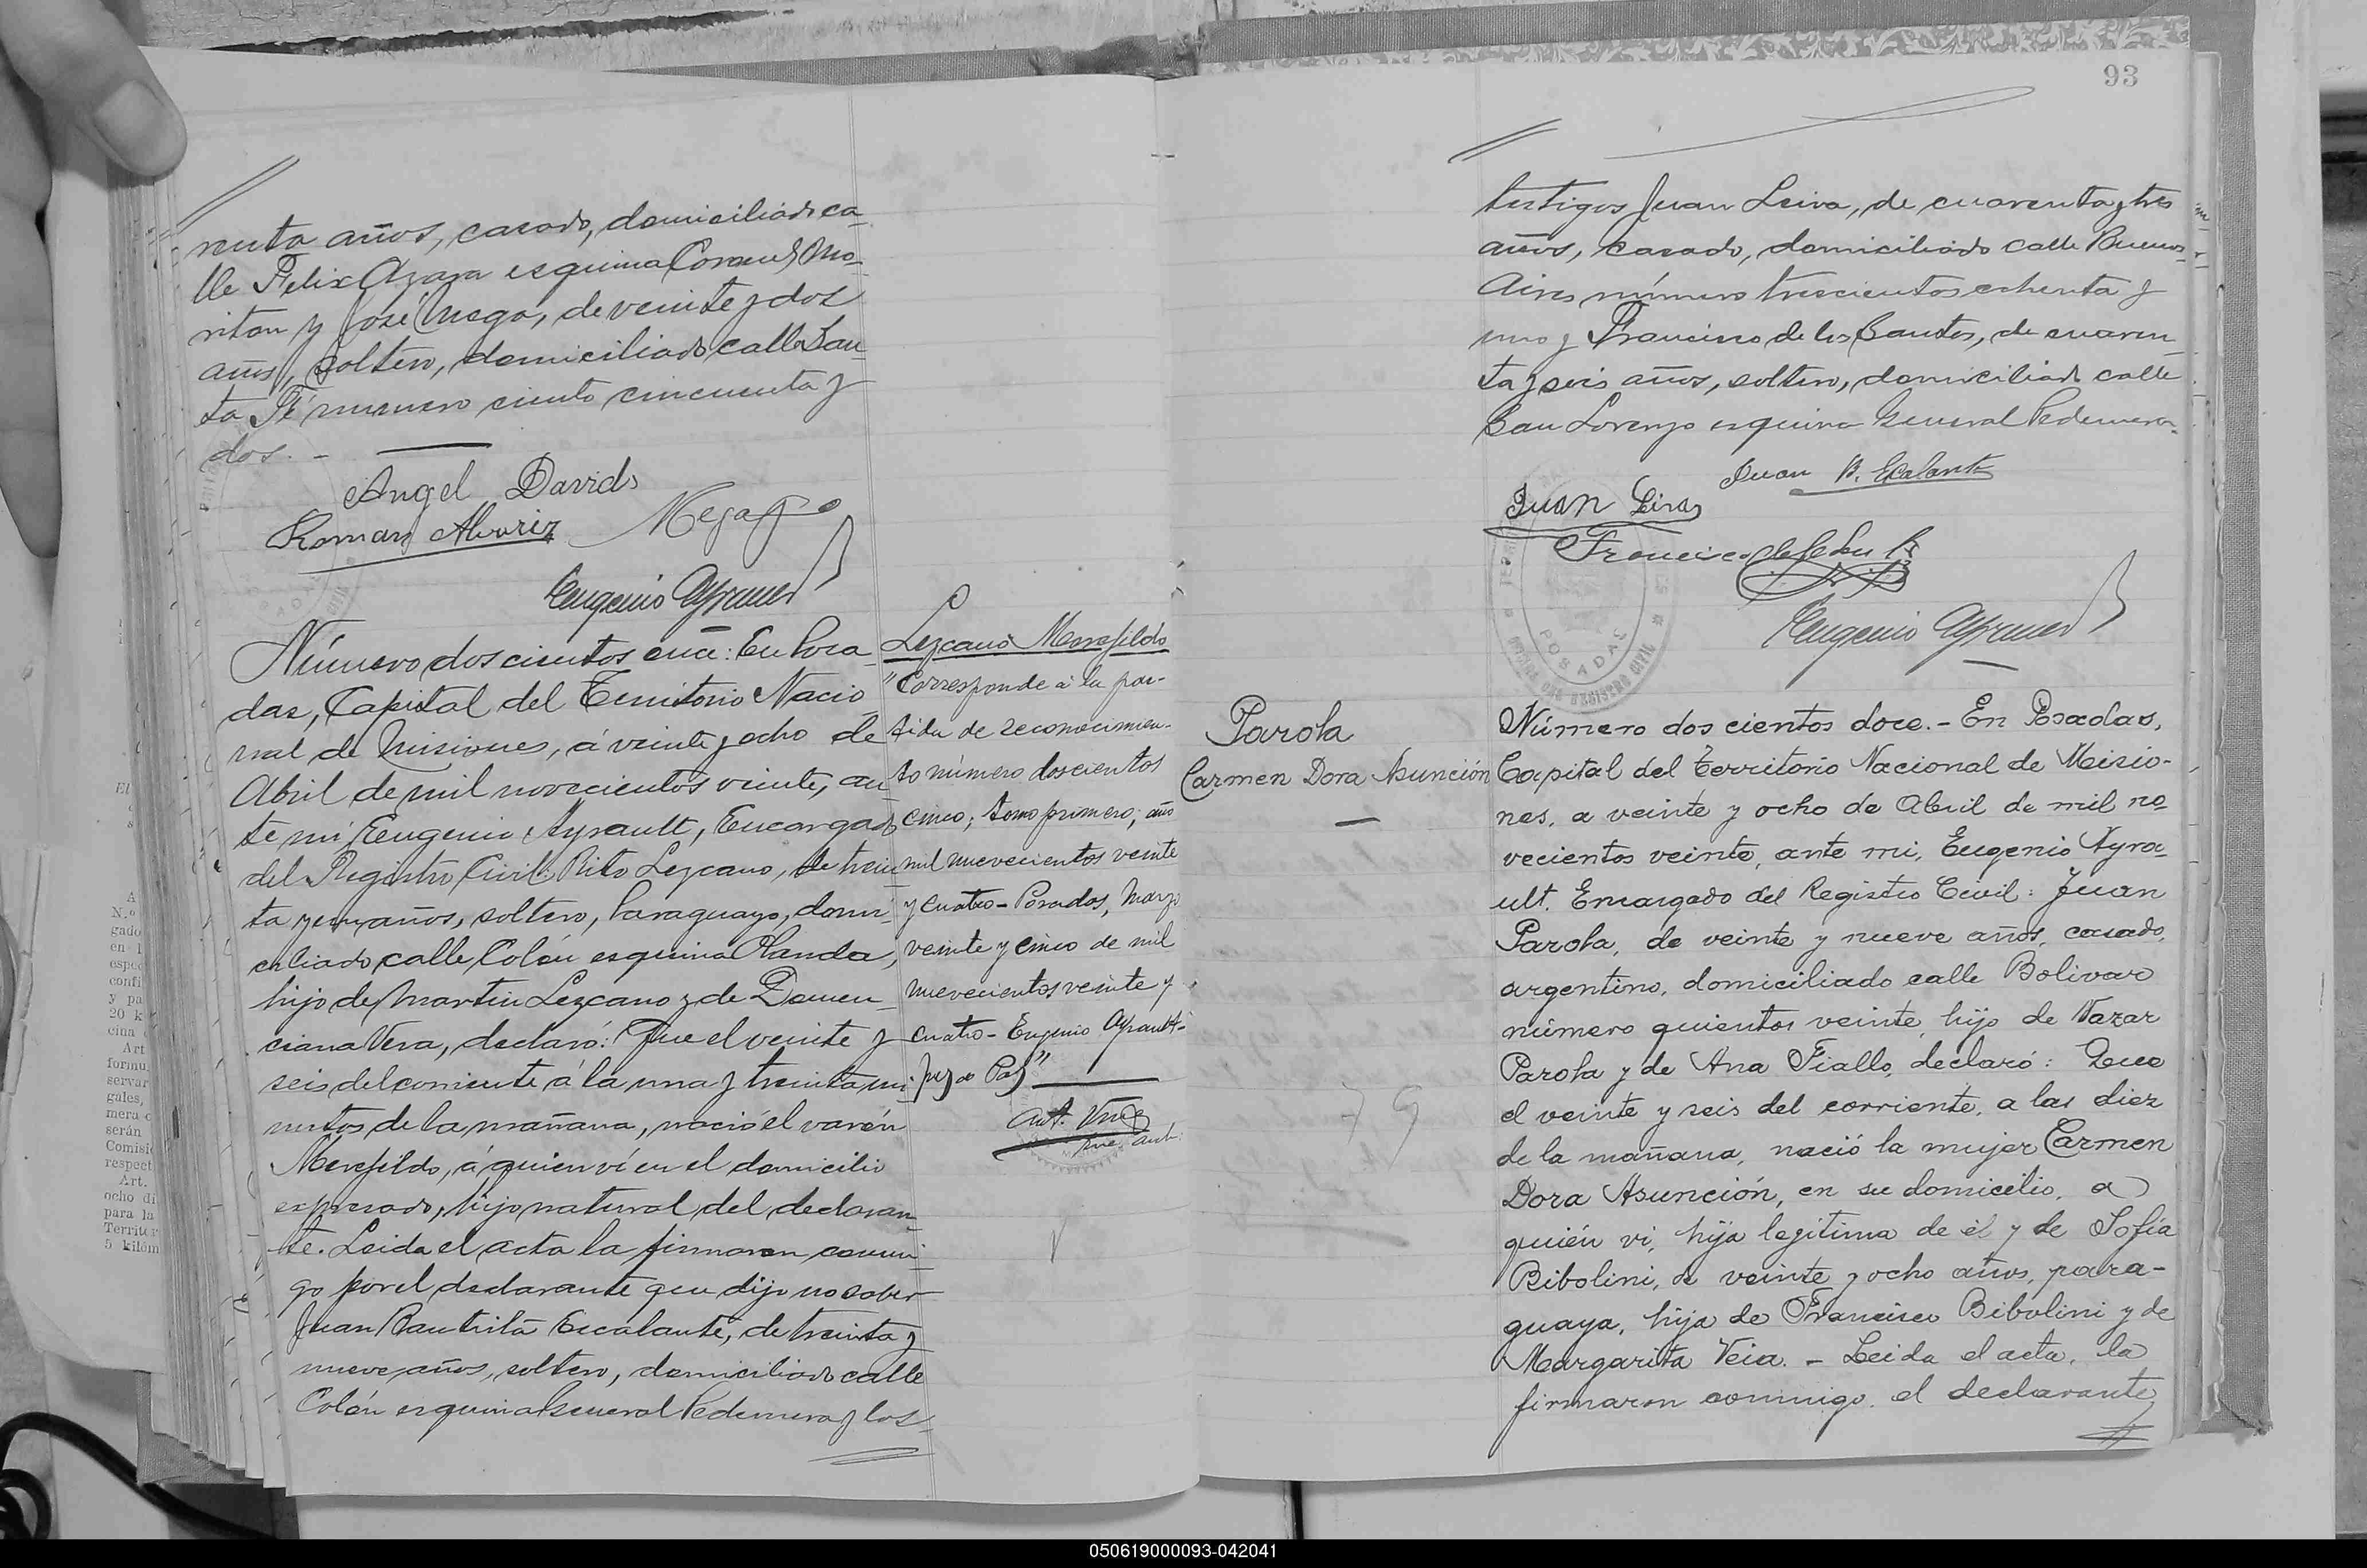 renta años, casado, domiciliado ca-
lle Felix Azara esquina Coronel Mo-
ritan y José Mega, de veinte y dos
años, soltero, domiciliado calle San-
ta Fé número ciento cincuenta y
dos. -
Angel Davids
Roman Alvarez Mega
Eugenio Ayrault
Número doscientos once: En Posa-
das, Capital del Territorio Nacio-
nal de Misiones, á veinte y ocho de
Abril de mil novecientos veinte, an-
te mi Eugenio Ayrault, Encargado
del Registro Civil: Rito Lezcano, de trein-
ta y un años, soltero, Paraguayo, domi-
ciliado calle Colón esquina Olanda,
hijo de Martin Lezcano y de Damen-
ciana Vera, declaró: Que el veinte y
seis del corriente á la una y treinta mi-
nutos de la mañana, nació el varón
Merejildo, á quien ví en el domicilio
expresado, hijo natural del declaran-
te. Leida el acta la firmaron conmi-
go por el declarante que dijo no saber
Juan Bautista Escalante, de treinta y
nueve años, soltero, domiciliado calle
Colón esquina General Pedernera y los
Lezcano Merejildo
"Corresponde á la par-
tida de reconocimien-
to número doscientos
cinco; tomo primero; año
mil nuevecientos veinte
y cuatro - Posadas, Marzo
veinte y cinco de mil
nuevecientos veinte y
cuatro - Eugenio Ayrault -
Juez de Paz"
93
testigos Juan Leiva, de cuarenta y tres
años, casado, domiciliado calle Buenos
Aires número trescientos ochenta y
uno y Francisco de los Santos, de cuaren-
ta y seis años, soltero, domiciliado calle
San Lorenzo esquina General Pedernera.
Juan B. Escalante
Juan Leiva
Francisco de
Eugenio Ayrault
POSADAS
OFICINA DEL REGISTRO CIVIL
Parola
Carmen Dora Asunción
Número dos cientos doce. - En Posadas,
Capital del Territorio Nacional de Misio-
nes, a veinte y ocho de Abril de mil no-
vecientos veinte, ante mi, Eugenio Ayra-
ult. Encargado del Registro Civil: Juan
Parola, de veinte y nueve años, casado,
argentino, domiciliado calle Bolivar
número quientos veinte, hijo de Nazar
Parola y de Ana Fiallo, declaró: Que
el veinte y seis del corriente, a las diez
de la mañana, nació la mujer Carmen
Dora Asunción, en su domicilio, a
quién vi, hija legítima de él y de Sofía
Bibolini, de veinte y ocho años, para-
guaya, hija de Francisco Bibolini y de
Margarita Veia. - Leida el acta, la
firmaron conmigo, el declarante
050619000093-042041